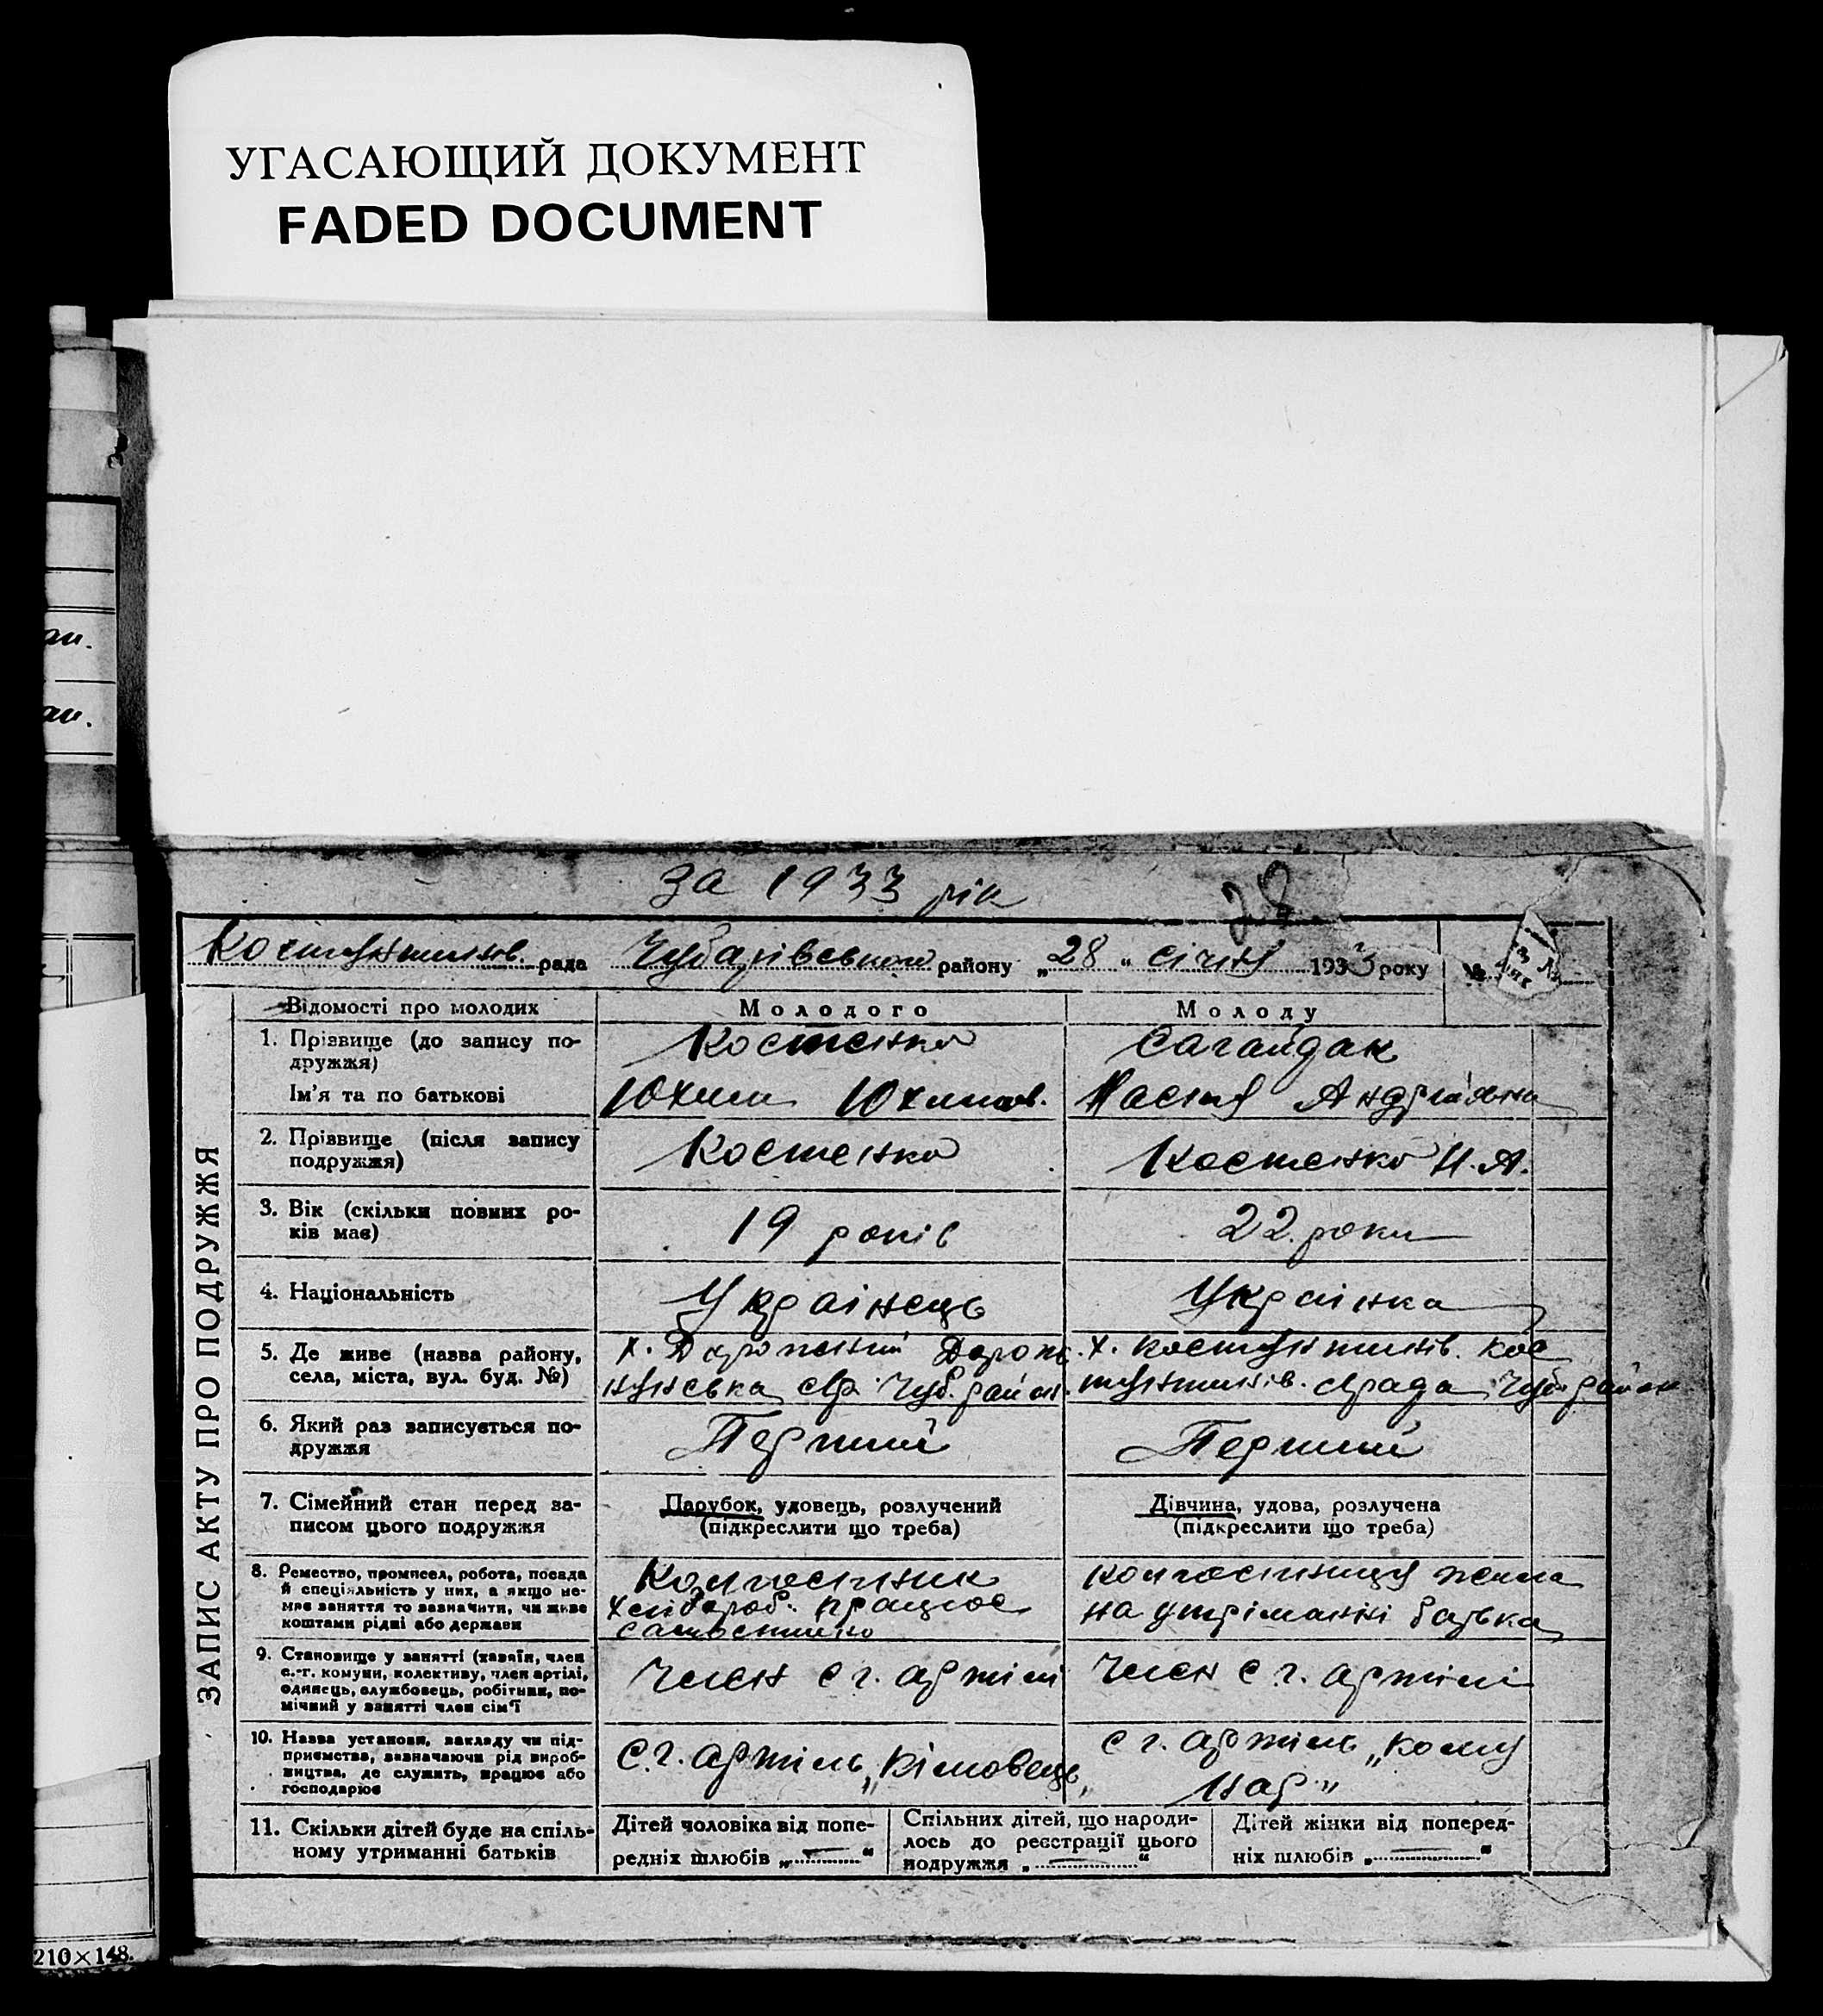 УГАСАЮЩИЙ ДОКУМЕНТ
FADED DOCUMENT
ан.
ан.
за 1933 рік
28
Костянтинів. рада Чубарівського району „28“ січня 1933 року №
ЗАПИС АКТУ ПРО ПОДРУЖЖЯ
Відомості про молодих Молодого Молоду
1. Прізвище (до запису по-
дружжя) Костенко Сагайдак
Ім'я та по батькові Юхим Юхимов. Настя Андріївна
2. Прізвище (після запису
подружжя) Костенко Костенко Н. А.
3. Вік (скільки повних ро-
ків має) 19 років 22 роки
4. Національність Українець Українка
5. Де живе (назва району, х. х. Костянтинів. Кос
села, міста, вул. буд. №) с/р. Чуб. район. тянтинів. с/рада Чуб. район
6. Який раз записується по-
дружжя Перший Перший
7. Сімейний стан перед за- Парубок, удовець, розлучений Дівчина, удова, розлучена
писом цього подружжя (підкреслити що треба) (підкреслити що треба)
8. Ремество, промисел, робота, посада Колгоспник колгоспниця жила
й спеціяльність у них, а якщо не-
має заняття то зазначити, чи живе хлібороб. працює на утріманні батька
коштами рідні або держави самостійно
9. Становище у занятті (хазяїн, член
с.-г. комуни, колективу, член артілі, Член с г. артілі Член с. г. артілі
одинець, службовець, робітник, по-
мічний у занятті член сім'ї
10. Назва установи, закладу чи під- с г. артіль „Кому
приємства, зазначаючи рід вироб- с. г. артіль „Кімовець“
ництва, де служить, працює або нар“
господарює
11. Скільки дітей буде на спіль-
ному утриманні батьків
Дітей чоловіка від попе-
редніх шлюбів „—“
Спільних дітей, що народи-
лось до реєстрації цього
подружжя „—“
Дітей жінки від поперед-
ніх шлюбів „—“
210×148.